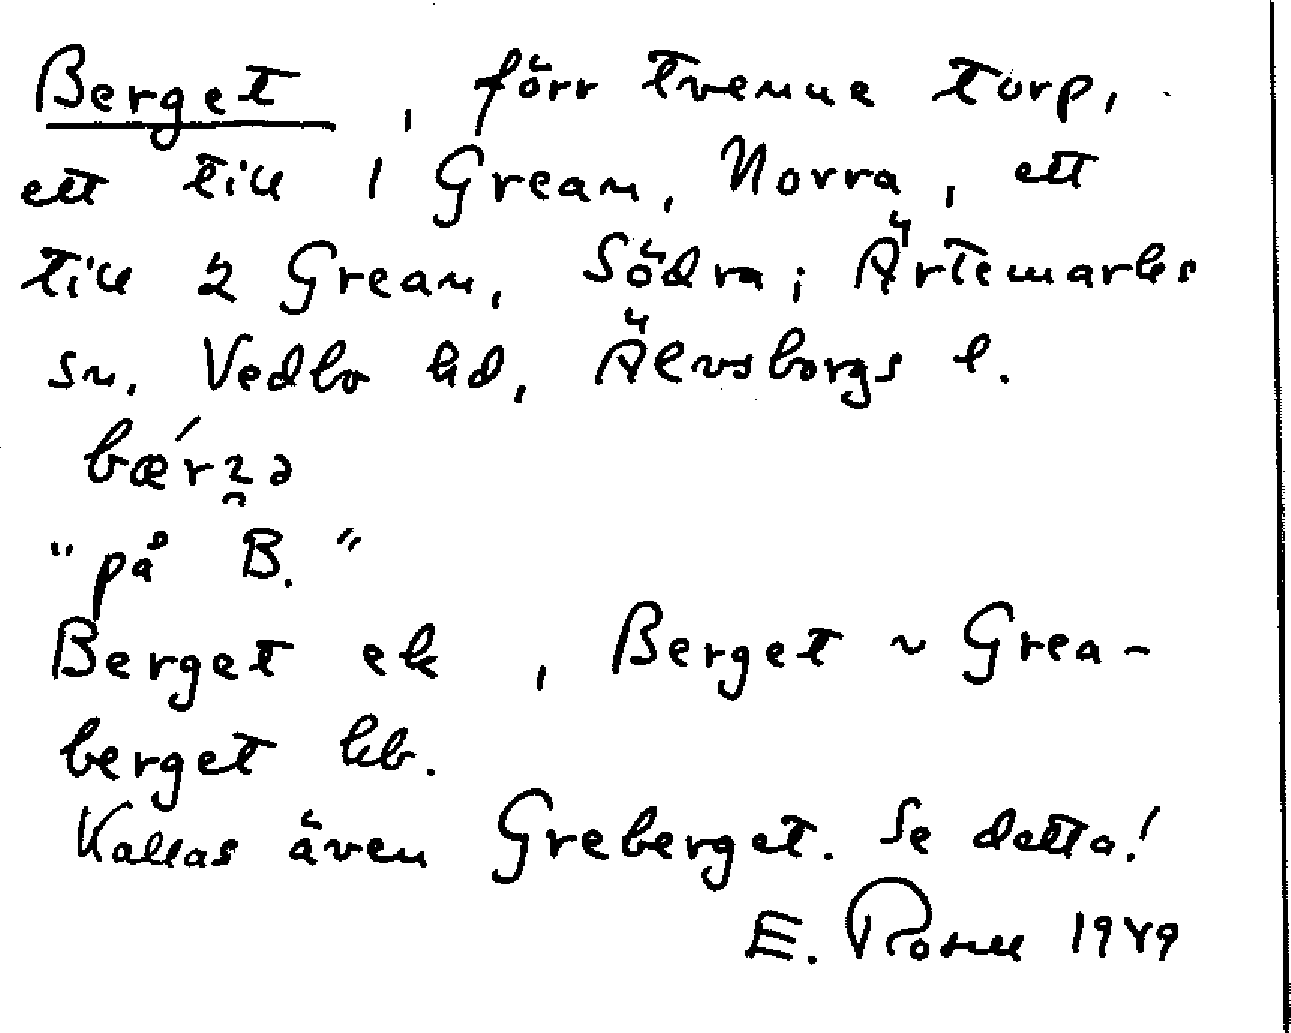 Berget, förr tvenne torp,
ett till 1 Grean, Norra, ett
till 2 Grean, Södra; Ärtemarks
sn. Vedbo hd, Älvsborgs l.
"på B."
Berget ek, Berget ~ Grea-
berget kb.
Kallas även Greberget. Se detta!
E. 1949